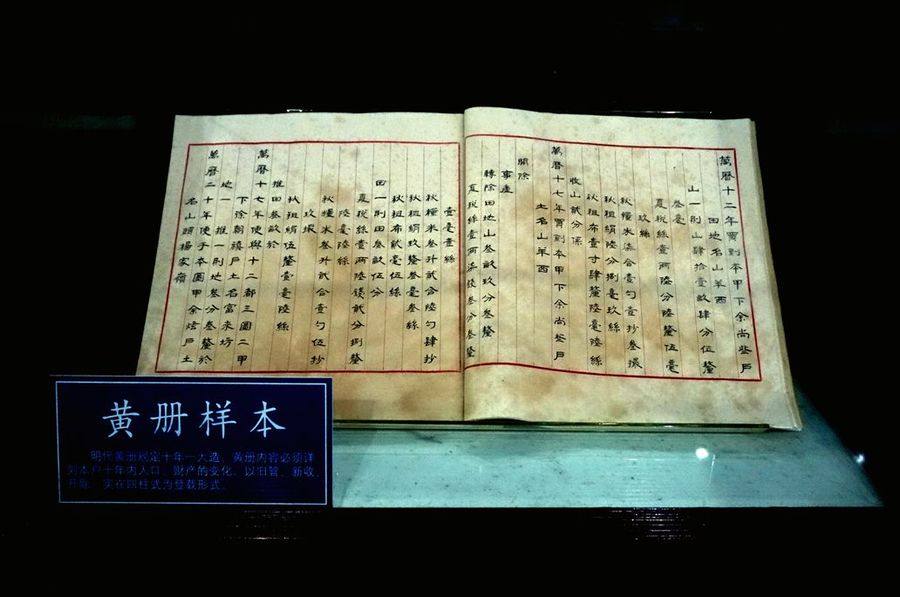 萬曆十二年買到本甲下余尚賢戶
田地名山羊西
山一則山肆拾壹畝肆分伍釐
叁毫
夏稅絲壹兩陸分陸釐伍毫
玖絲
秋糧米柒合壹勺壹抄叁撮
秋租絹陸分捌釐壹毫玖絲
秋租布壹寸肆釐陸毫陸絲
收山貳分係
萬曆十七年買到本甲下余尚戶
土名山羊西
開除
事產
轉除田地山叁畝玖分叁釐
夏稅絲壹兩柒錢叁分叁釐
壹毫壹絲
秋糧米叁升貳合陸勺肆抄
秋租絹玖釐叁毫叁絲
秋租布貳毫伍絲
田一則田叁畝伍分
夏稅絲壹兩陸錢貳分捌釐
陸毫陸絲
秋糧米叁升貳合壹勺伍抄
玖撮
秋租絹伍釐壹毫陸絲
推田叁畝於
萬曆十七年使與十二都三圖二甲
下徐朝禧戶土名富來坊
地一則地叁分叁釐於
萬曆二十年使于本圖甲余焙戶土
名山頭楊家嶺
黄册样本
明代黄册规定十年一大造，黄册内容必须详
列本户十年内人口、财产的变化，以旧管、新收、
开除、实在四柱式为登载形式。